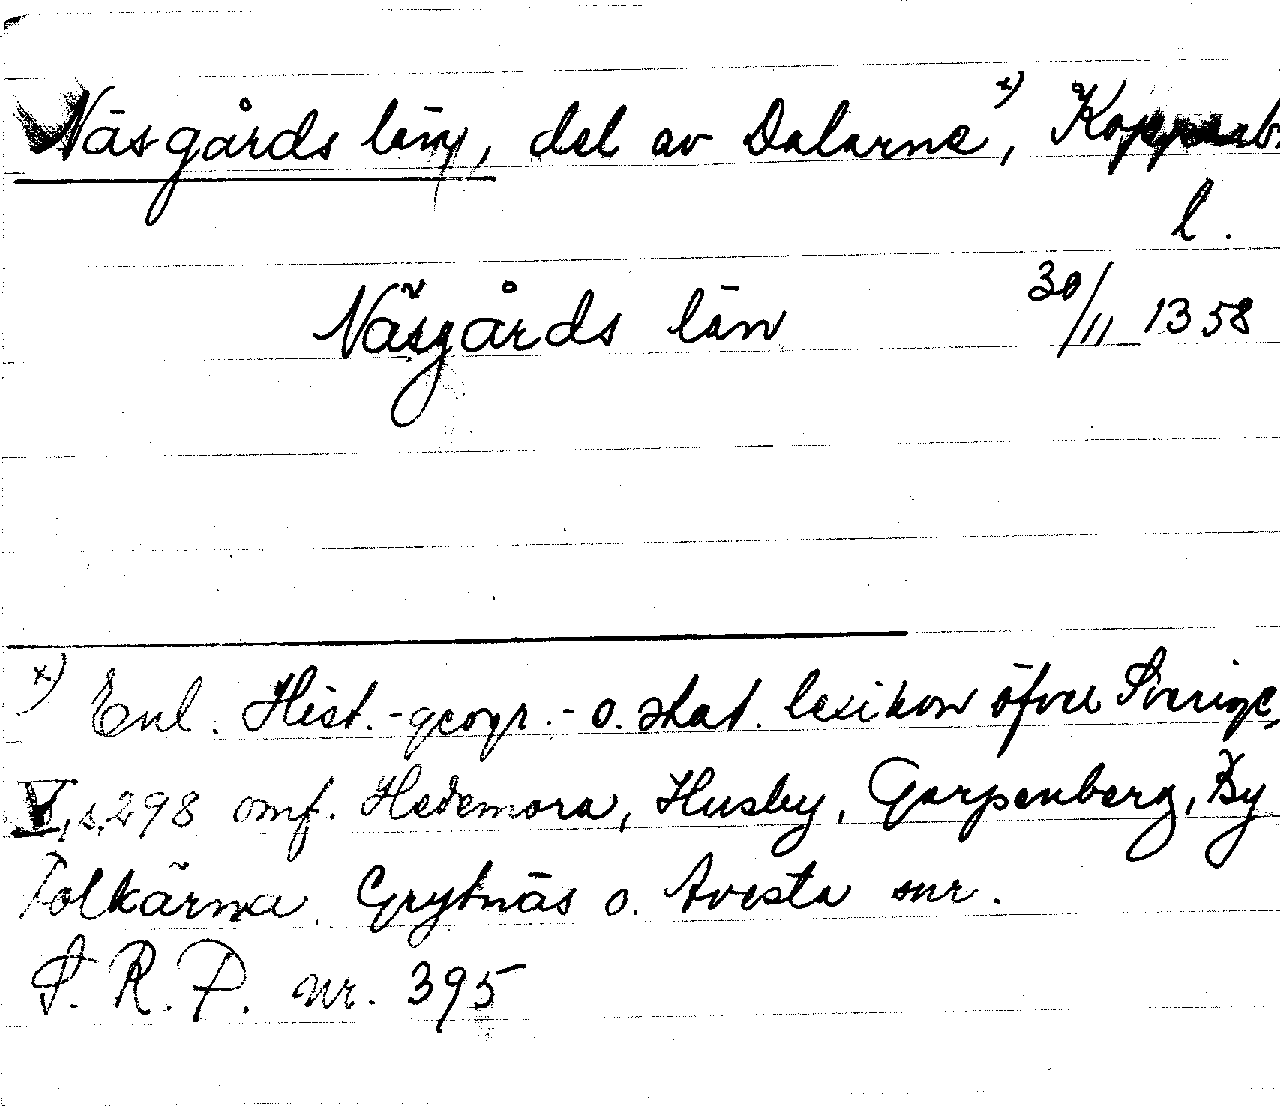 Näsgårds län, del av Dalarne x), Kopparb.
l.
Näsgårds län 30/11 1358
x) Enl. Hist.-geogr.- o. stat. lexikon öfver Sverige,
V, s. 298 omf. Hedemora, Husby, Garpenberg, By
Folkärna, Grytnäs o. Avesta snr.
S.R.P. nr. 395